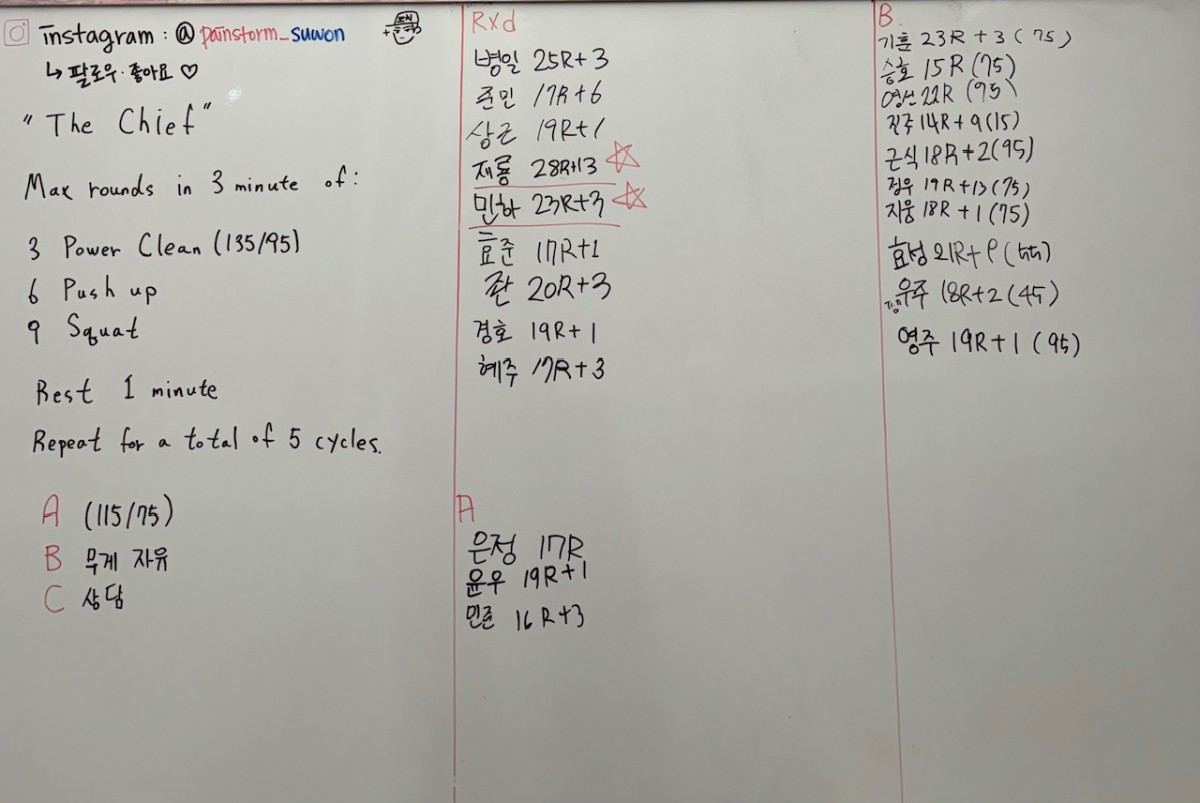 instagram : @painstorm_suwon
↳ 팔로우·좋아요 ♡
"The Chief"
Max rounds in 3 minute of:
3 Power Clean (135/95)
6 Push up
9 Squat
Rest 1 minute
Repeat for a total of 5 cycles.
A (115/75)
B 무게 자유
C 상담
Rxd
병일 25R+3
준민 17R+6
상근 19R+1
재룡 28R+13 ☆
민하 23R+3 ☆
효준 17R+1
20R+3
경호 19R+1
혜주 17R+3
A
은정 17R
윤우 19R+1
민준 16R+3
B
기훈 23R+3 (75)
승호 15R (75)
영선 22R (95)
진주 14R+9 (15)
근식 18R+2 (95)
정우 19R+13 (75)
지웅 18R+1 (75)
효성 21R+9 (55)
우주 18R+2 (45)
영주 19R+1 (95)